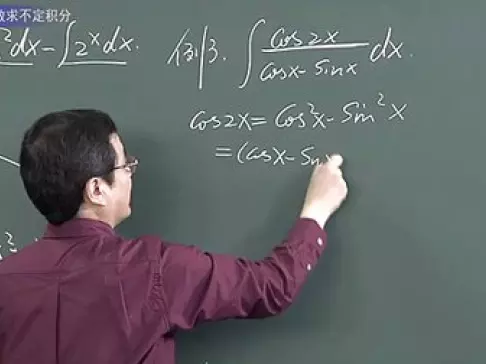 数求不定积分
²dx - ∫2ˣdx.
例3. ∫ cos2x / (cosx - sinx) dx.
cos2x = cos²x - sin²x
= (cosx - sinx